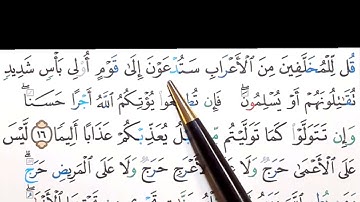 قُل لِّلْمُخَلَّفِينَ مِنَ ٱلْأَعْرَابِ سَتُدْعَوْنَ إِلَىٰ قَوْمٍ أُو۟لِى بَأْسٍ شَدِيدٍ
تُقَٰتِلُونَهُمْ أَوْ يُسْلِمُونَ ۖ فَإِن تُطِيعُوا۟ يُؤْتِكُمُ ٱللَّهُ أَجْرًا حَسَنًا ۖ
وَإِن تَتَوَلَّوْا۟ كَمَا تَوَلَّيْتُم يُعَذِّبْكُمْ عَذَابًا أَلِيمًا ١٦ لَّيْسَ
عَلَى ٱلْأَعْمَىٰ حَرَجٌ وَلَا عَلَى ٱلْأَعْرَجِ حَرَجٌ وَلَا عَلَى ٱلْمَرِيضِ حَرَجٌ ۗ